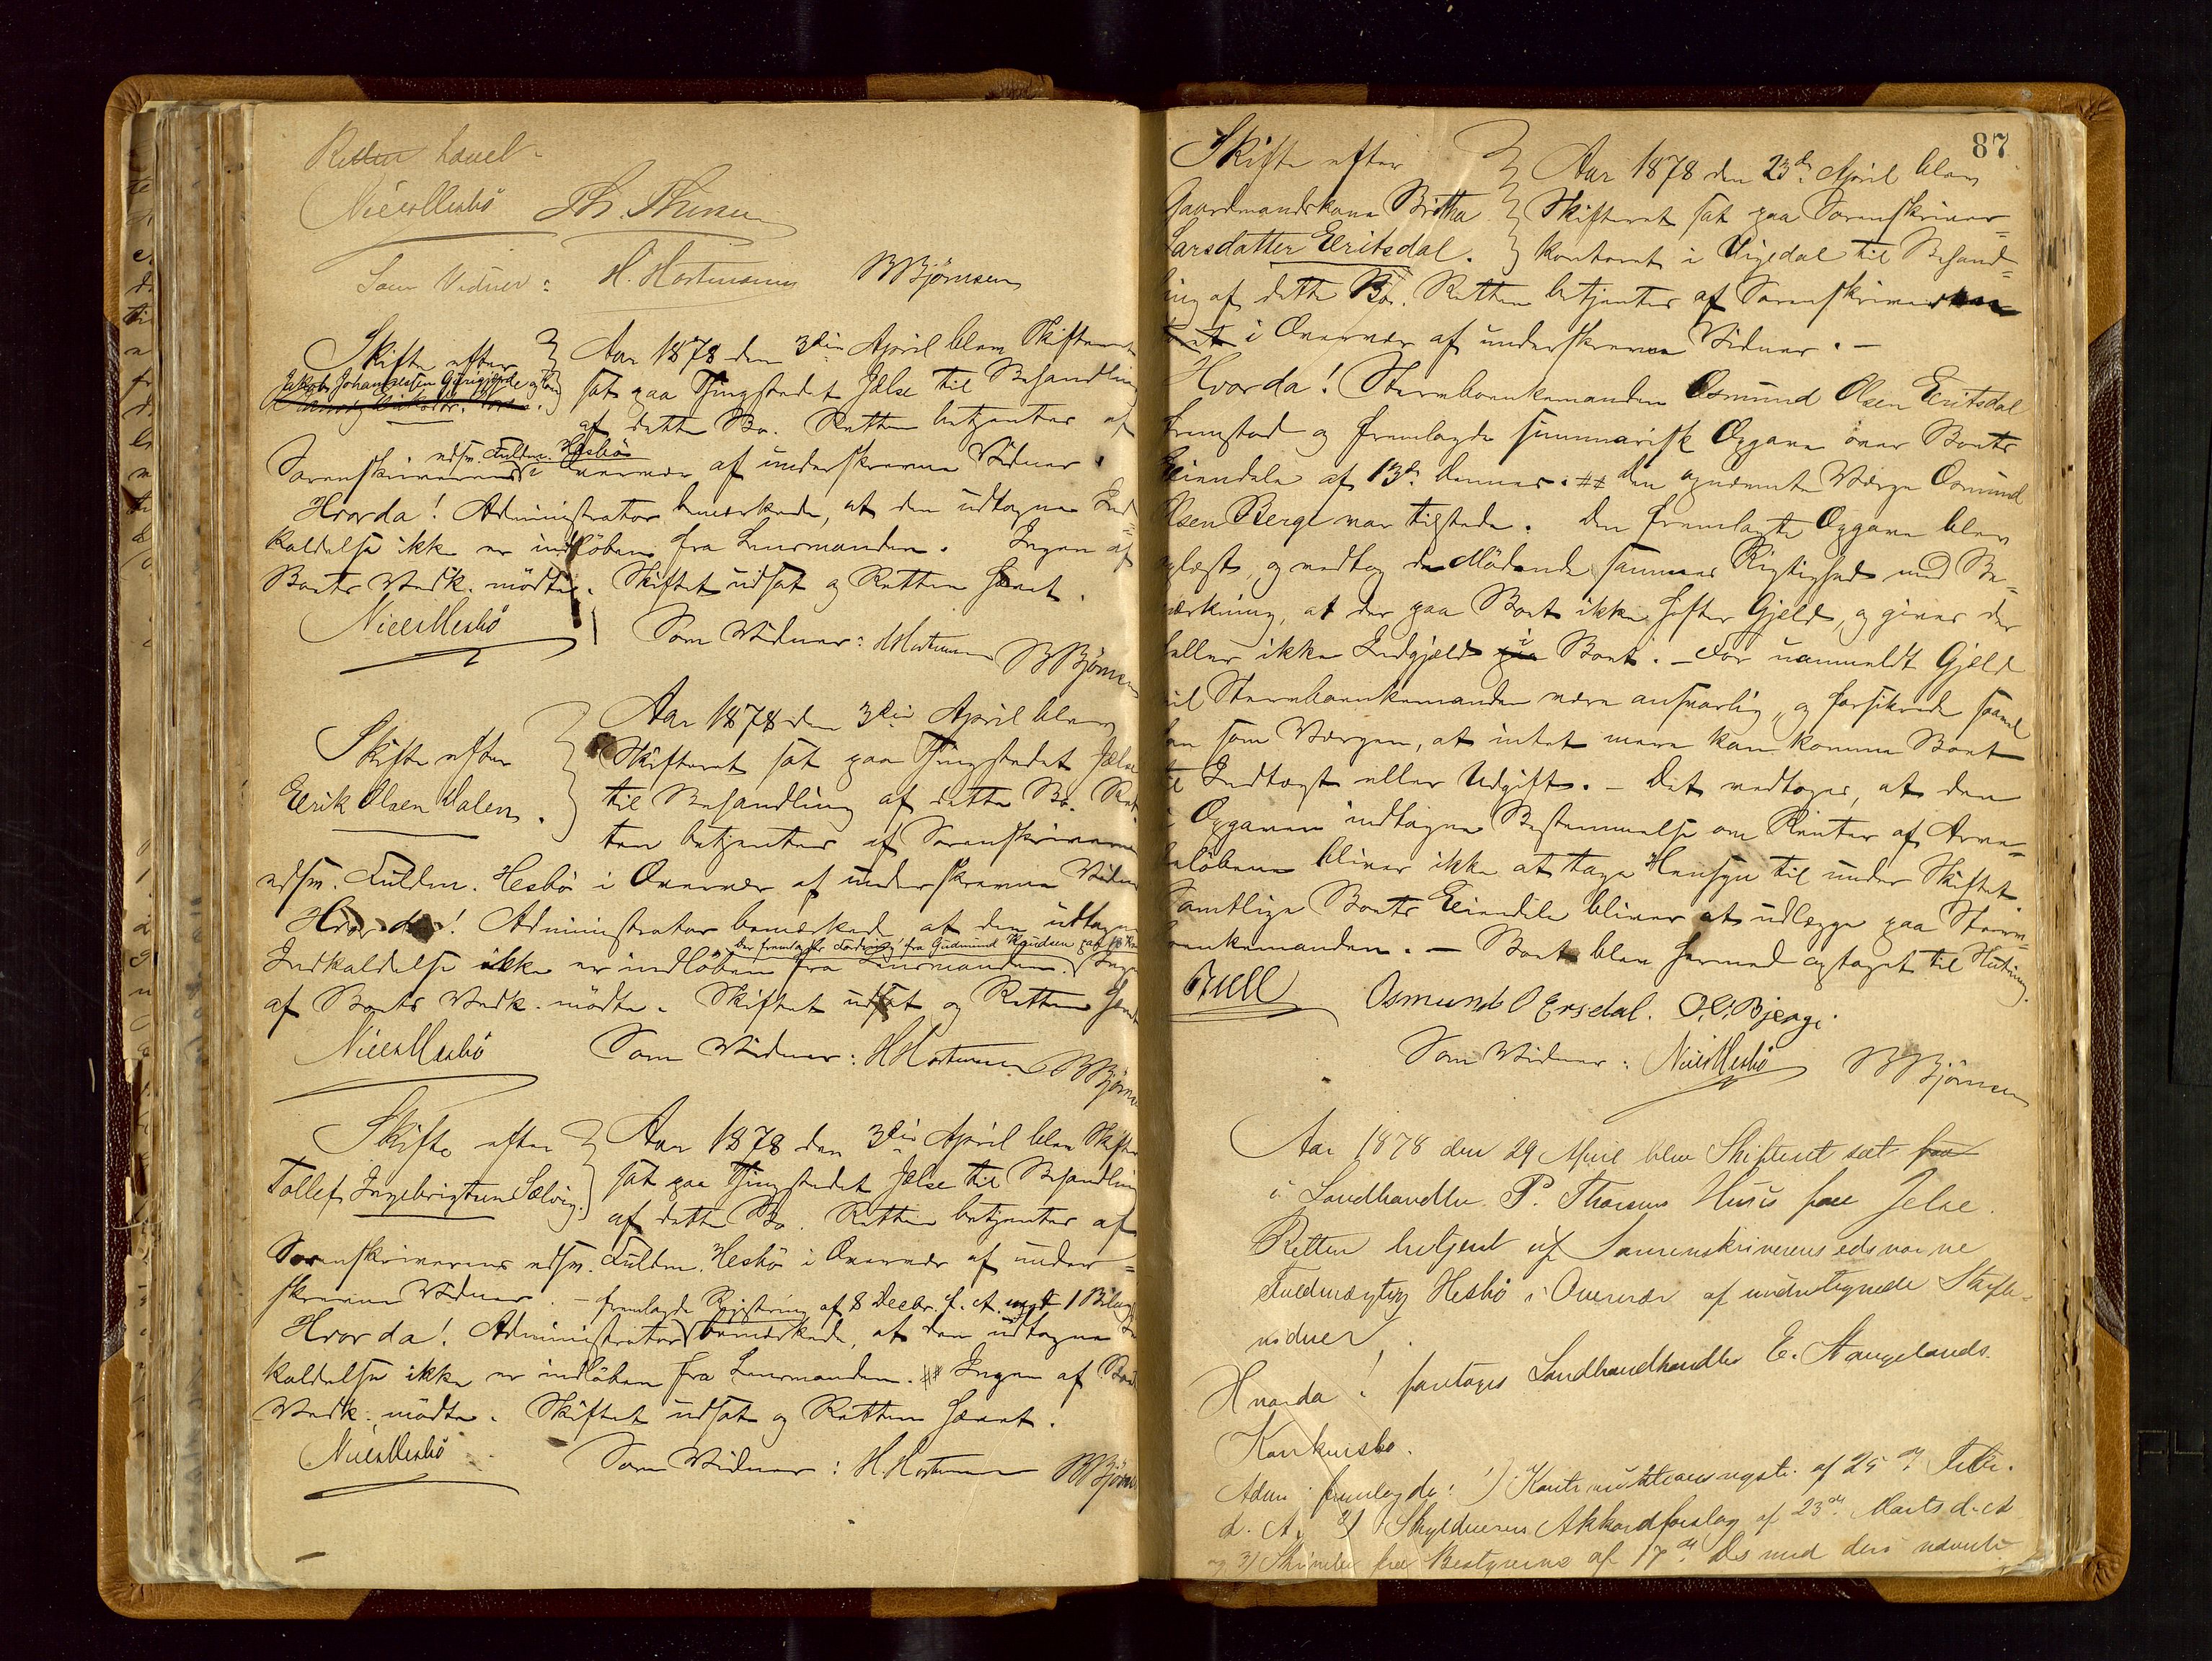 Retten hævet.
Niels Hesbö Th. Thiesen
Som Vidner: H. Hortmann B Björnsen
Skifte efter
Jakob Johannessen og
Aar 1878 den 3die April blev Skifteret
sat paa Thingstedet Jelse til Behandling
af dette Bo. Retten betjentes af
edsv. Fuldm. Hesbö
Sorenskriverens i Overvær af underskrevne Vidner.
Hvorda! Administrator bemærkede, at den udtagne Ind=
kaldelse ikke er indlöben fra Lensmanden. Ingen af
Boets Vedk. mödte. Skiftet udsat og Retten hævet.
Niels Hesbö Som Vidner: H Hortmann B Björnsen
Skifte efter
Eerik Olsen Dalen.
Aar 1878 den 3die April blev
Skifteret sat paa Thingstedet Jælse
til Behandling af dette Bo. Ret
ten betjentes af Sorenskriverens
edsv. Fuldm. Hesbö i Overvær af underskrevne Vidner
Hvorda! Administrator bemærkede at den udtagne
Der fremlagdes Fordring fra Gudmund Knudsen
Indkaldelse ikke er indlöben fra Lensmanden. Ingen
af Boets Vedk. mödte. Skiftet udsat og Retten hævet
Niels Hesbö Som Vidner: H Hortmann B Björnsen
Skifte efter
Tollef Ingebrigtsen Sælvig.
Aar 1878 den 3die April blev Skifte
sat paa Thingstedet Jælse til Behandling
af dette Bo. Retten betjentes af
Sorenskriverens edsv. Fuldm. Hesbö i Overvær af under=
skrevne Vidner. –
fremlagde Registrering af 8 Decbr. f. A. med 1 Bilag
Hvorda! Administrator bemærkede, at den udtagne In
kaldelse ikke er indlöben fra Lensmanden. ## Ingen af Boets
Vedk. mödte. Skiftet udsat og Retten hævet.
Niels Hesbö Som Vidner: H. Hortmann B Björnsen
87
Skifte efter
Gaardmandskone Britha
Larsdatter Eeritsdal.
Aar 1878 den 23de April blev
Skifteret sat paa Sorenskriver=
kontoret i Vigedal til Behand=
ling af dette Bo. Retten betjentes af Sorenskriveren
i Overvær af underskrevne Vidner. –
Hvorda! Stervboenkemanden Osmund Olsen Eeritsdal
fremstod og fremlagde summarisk Opgave over Boets
Eiendele af 13de dennes. ## Den opnævnte Værge Osmund
Olsen Berge var tilstede. Den fremlagte Opgave blev
oplæst, og vedtog de Mödende sammes Rigtighed med Be=
mærkning, at der paa Boet ikke hefter Gjeld, og gives der
heller ikke Indgjæld i Boet. – For uanmeldt Gjeld
vil Stervboenkemanden være ansvarlig, og forsikrede saavel
han som Værgen, at intet mere kan komme Boet
til Indtægt eller Udgift. – Det vedtoges, at den
i Opgaven indtagne Bestemmelse om Renter af Arve=
belöbene bliver ikke at tage Hensyn til under Skiftet.
Samtlige Boets Eiendele bliver at udlægge paa Sterv=
boenkemanden. – Boet blev hermed optaget til Slutning.
Buell Osmund O Ersdal. O. O. Bjerge.
Som Vidner: Niels Hesbö B Björnsen
Aar 1878 den 29 April blev Skifteret sat paa
i Landhandler P. Thorsens Huus paa Jelse.
Retten betjent af Sorenskriverens edsvorne
Fuldmægtig Hesbö i Overvær af undertegnede Skifte=
vidner.
Hvorda! foretoges Landhandler E. Stangelands
Konkursbo.
Adm. fremlagde: 1) af 25 d. Febr.
d. A, 2) Skyldnerens Akkordforslag af 23de Marts d. A
og 3) Skrivelse fra Bestyrerne af 17de ds med deri